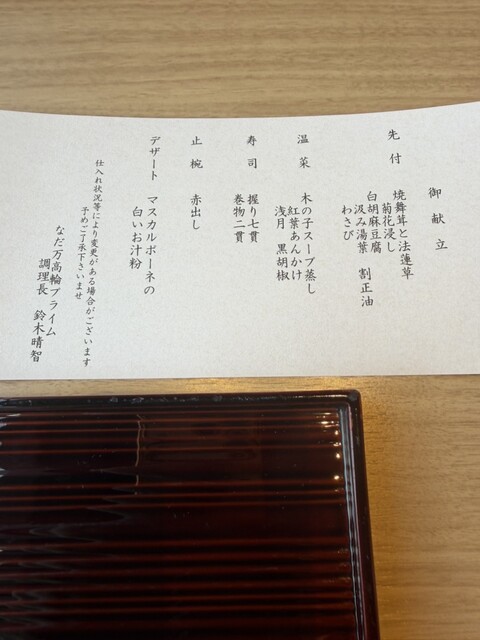 御献立
先付
焼舞茸と法蓮草
菊花浸し
白胡麻豆腐
汲み湯葉 割正油
わさび
温菜
木の子スープ蒸し
紅葉あんかけ
浅月 黒胡椒
寿司
握り七貫
巻物二貫
止椀 赤出し
デザート マスカルポーネの
白いお汁粉
仕入れ状況等により変更がある場合がございます
予めご了承下さいませ
なだ万高輪プライム
調理長 鈴木晴智